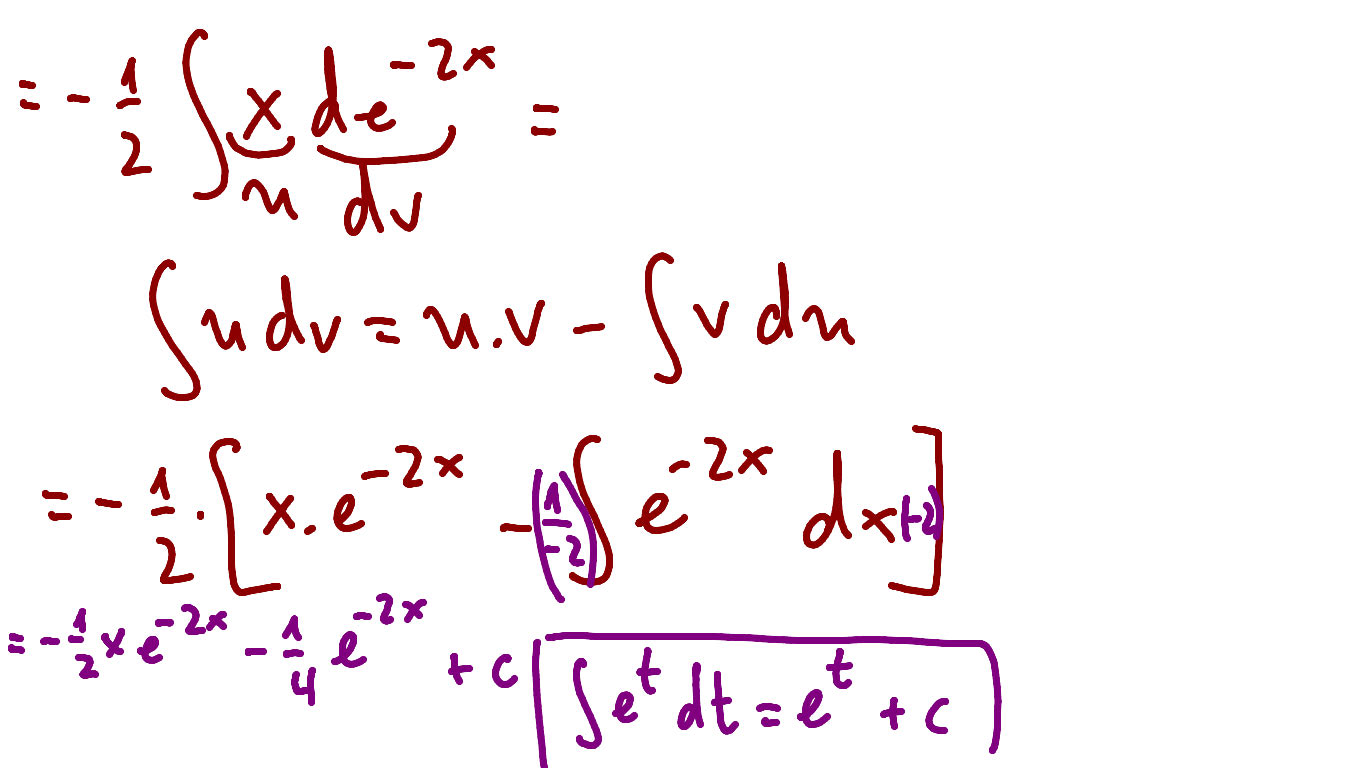 = - 1/2 ∫ x d e^{-2x} =
u dv
∫ u dv = u . v - ∫ v du
= - 1/2 . [ x . e^{-2x} - (1/-2) ∫ e^{-2x} dx (-2) ]
= - 1/2 x e^{-2x} - 1/4 e^{-2x} + c
∫ e^t dt = e^t + c